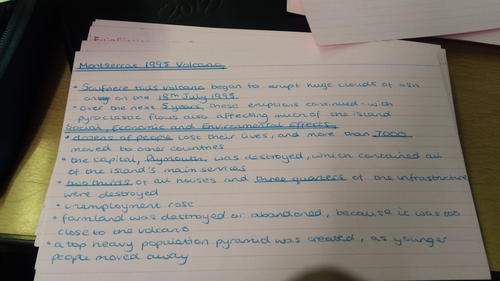 2012
Montserrat 1995 Volcano
• Soufriere Hills Volcano began to erupt huge clouds of ash
on the 18th July 1995
• over the next 5 years these eruptions continued - with
pyroclastic flows also affecting much of the island
Social, Economic and Environmental Effects
• dozens of people lost their lives, and more than 7000
moved to other countries
• the capital, Plymouth, was destroyed, which contained all
of the island's main services
• two thirds of all houses and three quarters of the infrastructure
were destroyed
• unemployment rose
• farmland was destroyed or abandoned, because it was too
close to the volcano
• a top heavy population pyramid was created, as younger
people moved away